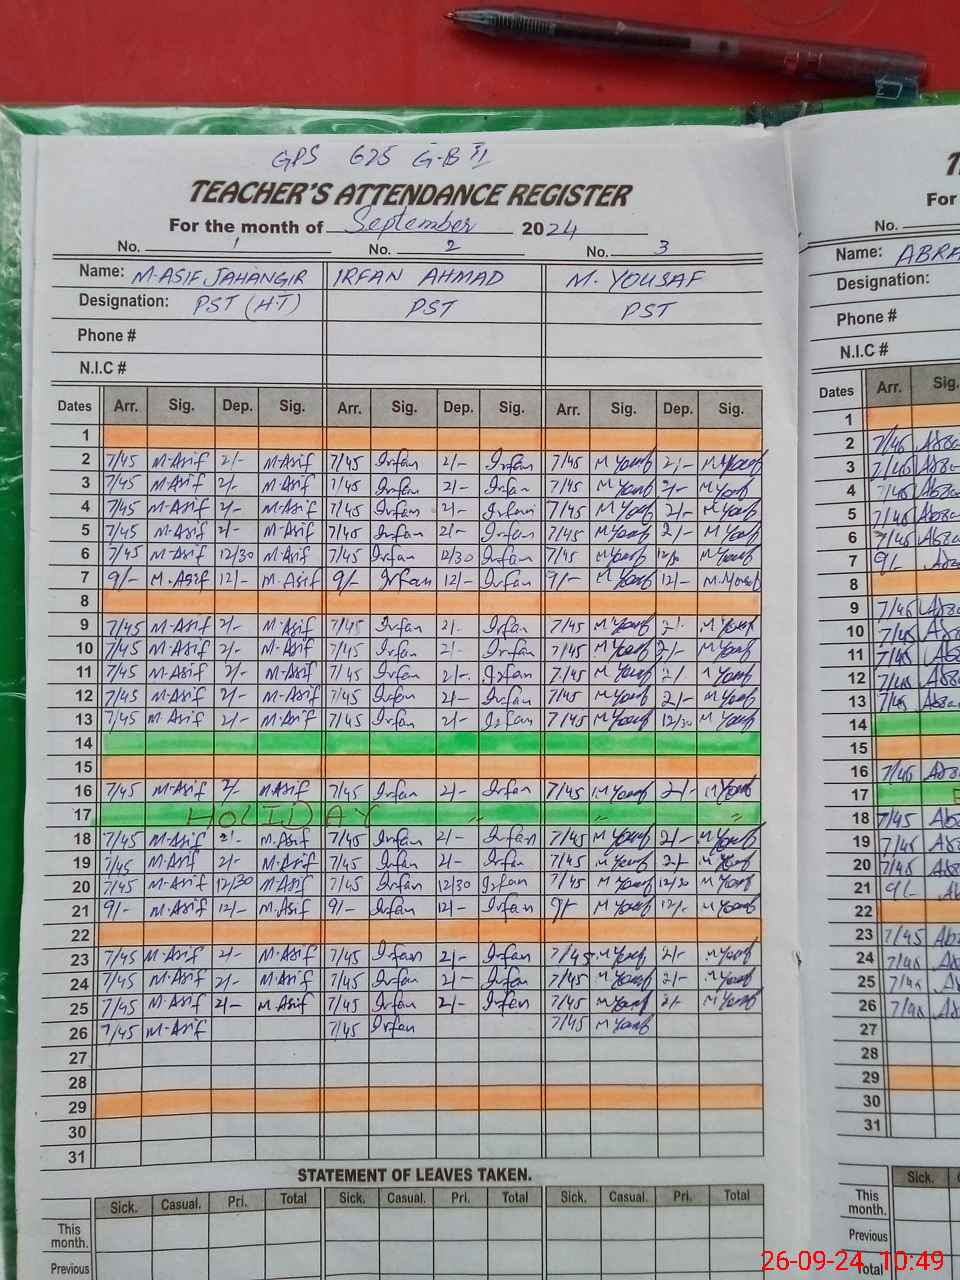 GPS 625 G.B II
TEACHER'S ATTENDANCE REGISTER
For the month of September 2024
No. 1 No. 2 No. 3 No.
Name: M.ASIF JAHANGIR IRFAN AHMAD M. YOUSAF Name: ABRA
Designation: PST (H.T) PST PST Designation:
Phone # Phone #
N.I.C # N.I.C #
Dates Arr. Sig. Dep. Sig. Arr. Sig. Dep. Sig. Arr. Sig. Dep. Sig. Dates Arr. Sig.
1 1
2 7/45 M.Asif 2/- M.Asif 7/45 Irfan 2/- Irfan 7/45 M Yousf 2/- M Yousf 2 7/45
3 7/45 M.Asif 2/- M.Asif 7/45 Irfan 2/- Irfan 7/45 M Yousf 2/- M Yousf 3 7/45
4 7/45 M.Asif 2/- M.Asif 7/45 Irfan 2/- Irfan 7/45 M Yousf 2/- M Yousf 4 7/45
5 7/45 M.Asif 2/- M.Asif 7/45 Irfan 2/- Irfan 7/45 M Yousf 2/- M Yousf 5 7/45
6 7/45 M.Asif 12/30 M.Asif 7/45 Irfan 12/30 Irfan 7/45 M Yousf 12/30 M Yousf 6 7/45
7 9/- M.Asif 12/- M.Asif 9/- Irfan 12/- Irfan 9/- M Yousf 12/- M.Yousf 7 9/-
8 8
9 7/45 M.Asif 2/- M.Asif 7/45 Irfan 2/- Irfan 7/45 M Yousf 2/- M Yousf 9 7/45
10 7/45 M.Asif 2/- M.Asif 7/45 Irfan 2/- Irfan 7/45 M Yousf 2/- M Yousf 10 7/45
11 7/45 M.Asif 2/- M.Asif 7/45 Irfan 2/- Irfan 7/45 M Yousf 2/- M Yousf 11 7/45
12 7/45 M.Asif 2/- M.Asif 7/45 Irfan 2/- Irfan 7/45 M Yousf 2/- M Yousf 12 7/45
13 7/45 M.Asif 2/- M.Asif 7/45 Irfan 2/- Irfan 7/45 M Yousf 12/30 M Yousf 13 7/45
14 14
15 15
16 7/45 M.Asif 2/- M.Asif 7/45 Irfan 2/- Irfan 7/45 M Yousf 2/- M Yousf 16 7/45
17 HOLIDAY " " " 17
18 7/45 M.Asif 2/- M.Asif 7/45 Irfan 2/- Irfan 7/45 M Yousf 2/- M Yousf 18 7/45
19 7/45 M.Asif 2/- M.Asif 7/45 Irfan 2/- Irfan 7/45 M Yousf 2/- M Yousf 19 7/45
20 7/45 M.Asif 12/30 M.Asif 7/45 Irfan 12/30 Irfan 7/45 M Yousf 12/30 M Yousf 20 7/45
21 9/- M.Asif 12/- M.Asif 9/- Irfan 12/- Irfan 9/- M Yousf 12/- M Yousf 21 9/-
22 22
23 7/45 M.Asif 2/- M.Asif 7/45 Irfan 2/- Irfan 7/45 M Yousf 2/- M Yousf 23 7/45
24 7/45 M.Asif 2/- M.Asif 7/45 Irfan 2/- Irfan 7/45 M Yousf 2/- M Yousf 24 7/45
25 7/45 M.Asif 2/- M.Asif 7/45 Irfan 2/- Irfan 7/45 M Yousf 2/- M Yousf 25 7/45
26 7/45 M.Asif 7/45 Irfan 7/45 M Yousf 26 7/45
27 27
28 28
29 29
30 30
31 31
STATEMENT OF LEAVES TAKEN.
Sick. Casual. Pri. Total Sick. Casual. Pri. Total Sick. Casual. Pri. Total Sick.
This month. This month.
Previous Previous
Total
26-09-24 10:49